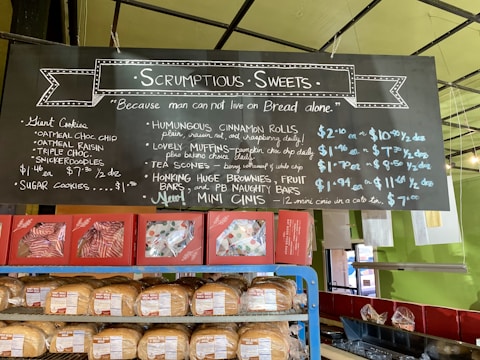 SCRUMPTIOUS · SWEETS
"Because man can not live on Bread alone."
Giant Cookies
· OATMEAL CHOC CHIP
· OATMEAL RAISIN
· TRIPLE CHOC.
· SNICKERDOODLES
$1.46 ea $7.30 1/2 doz
· SUGAR COOKIES.....$1.50
· HUMUNGOUS CINNAMON ROLLS $2.10 ea ~ $10.50 1/2 doz
plain, raisin nut, and raspberry daily!
· LOVELY MUFFINS - pumpkin choc chip daily $1.46 ea ~ $7.30 1/2 doz
plus bakers choice daily
· TEA SCONES - berry white chips $1.70 ea ~ $8.50 1/2 doz
· HONKING HUGE BROWNIES, FRUIT
BARS, and PB NAUGHTY BARS $1.94 ea 1/2 doz
New! MINI CINIS - 12 mini cinis in a $7.